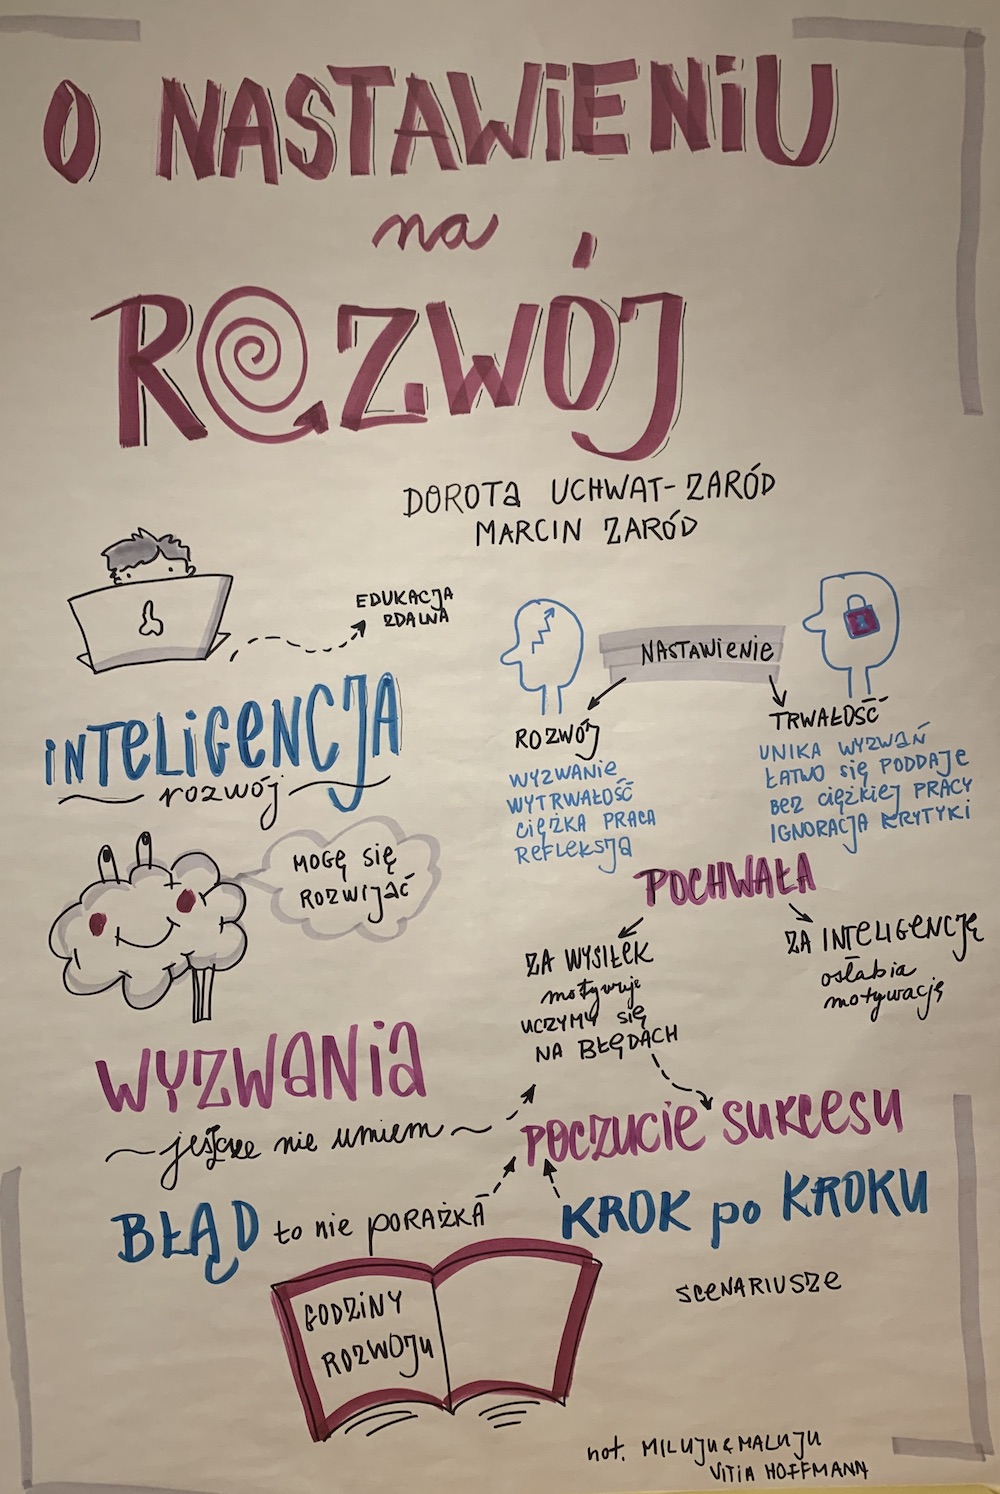 O NASTAWIENIU
na
ROZWÓJ
DOROTA UCHWAT-ZARÓD
MARCIN ZARÓD
EDUKACJA
ZDALNA
NASTAWIENIE
ROZWÓJ
WYZWANIE
WYTRWAŁOŚĆ
CIĘŻKA PRACA
REFLEKSJA
TRWAŁOŚĆ
UNIKA WYZWAŃ
ŁATWO SIĘ PODDAJE
BEZ CIĘŻKIEJ PRACY
IGNORACJA KRYTYKI
INTELIGENCJA
rozwój
MOGĘ SIĘ
ROZWIJAĆ
POCHWAŁA
ZA WYSIŁEK
motywuje
UCZYMY SIĘ
NA BŁĘDACH
ZA INTELIGENCJĘ
osłabia
motywację
WYZWANIA
jeszcze nie umiem
POCZUCIE SUKCESU
BŁĄD to nie PORAŻKA
KROK po KROKU
SCENARIUSZE
GODZINY
ROZWOJU
not. MILUJU & MALUJU
VITIA HOFFMANN